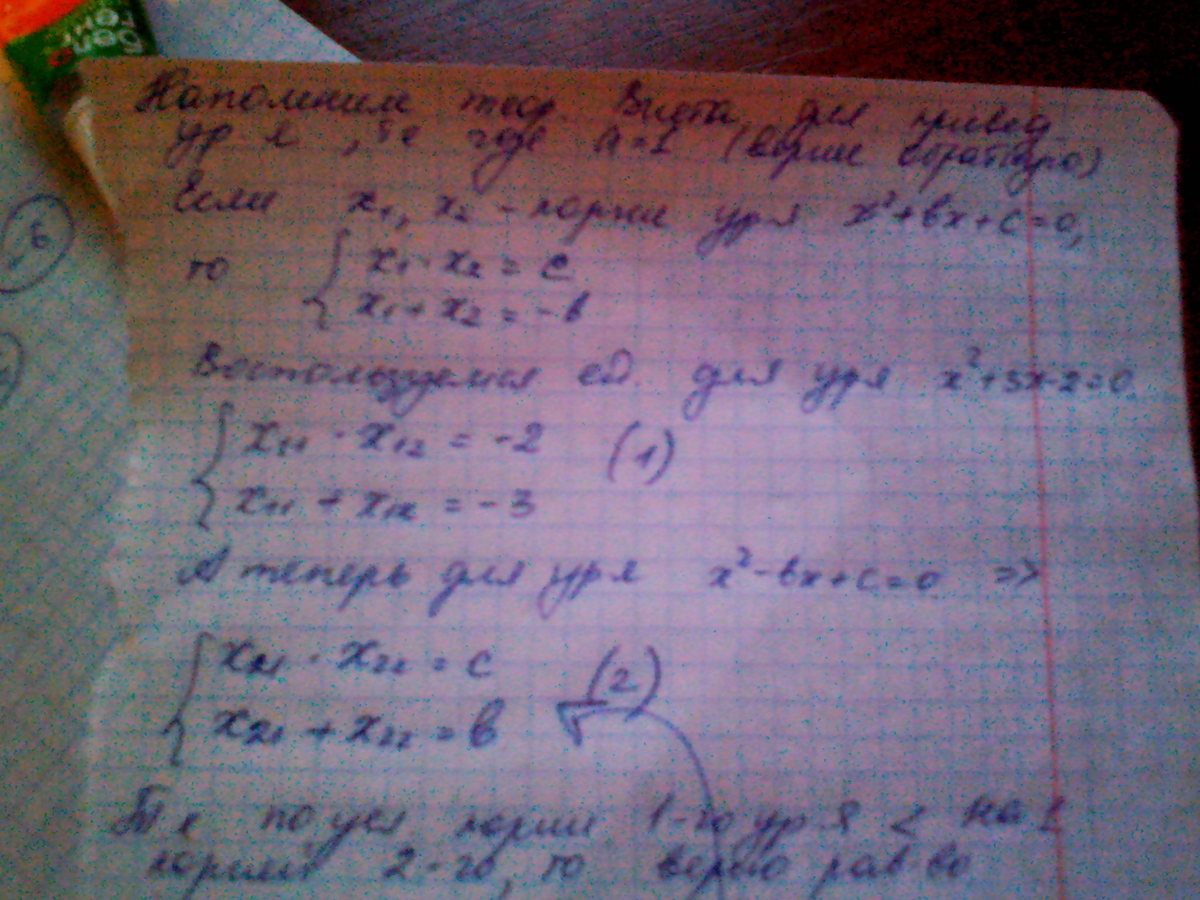 Напомним теор. Виета для привед
ур я , те где a=1 (верна обратную)
Если x₁, x₂ - корни ур я x²+bx+c=0,
то { x₁ · x₂ = c
x₁ + x₂ = -b
Воспользуемся ей. для ур я x²+3x-2=0
{ x₁₁ · x₁₂ = -2 (1)
x₁₁ + x₁₂ = -3
А теперь для ур я x²-bx+c=0 =>
{ x₂₁ · x₂₂ = c (2)
x₂₁ + x₂₂ = b
Т к по усл корни 1-го ур я < на 1
корней 2-го, то верно рав-во